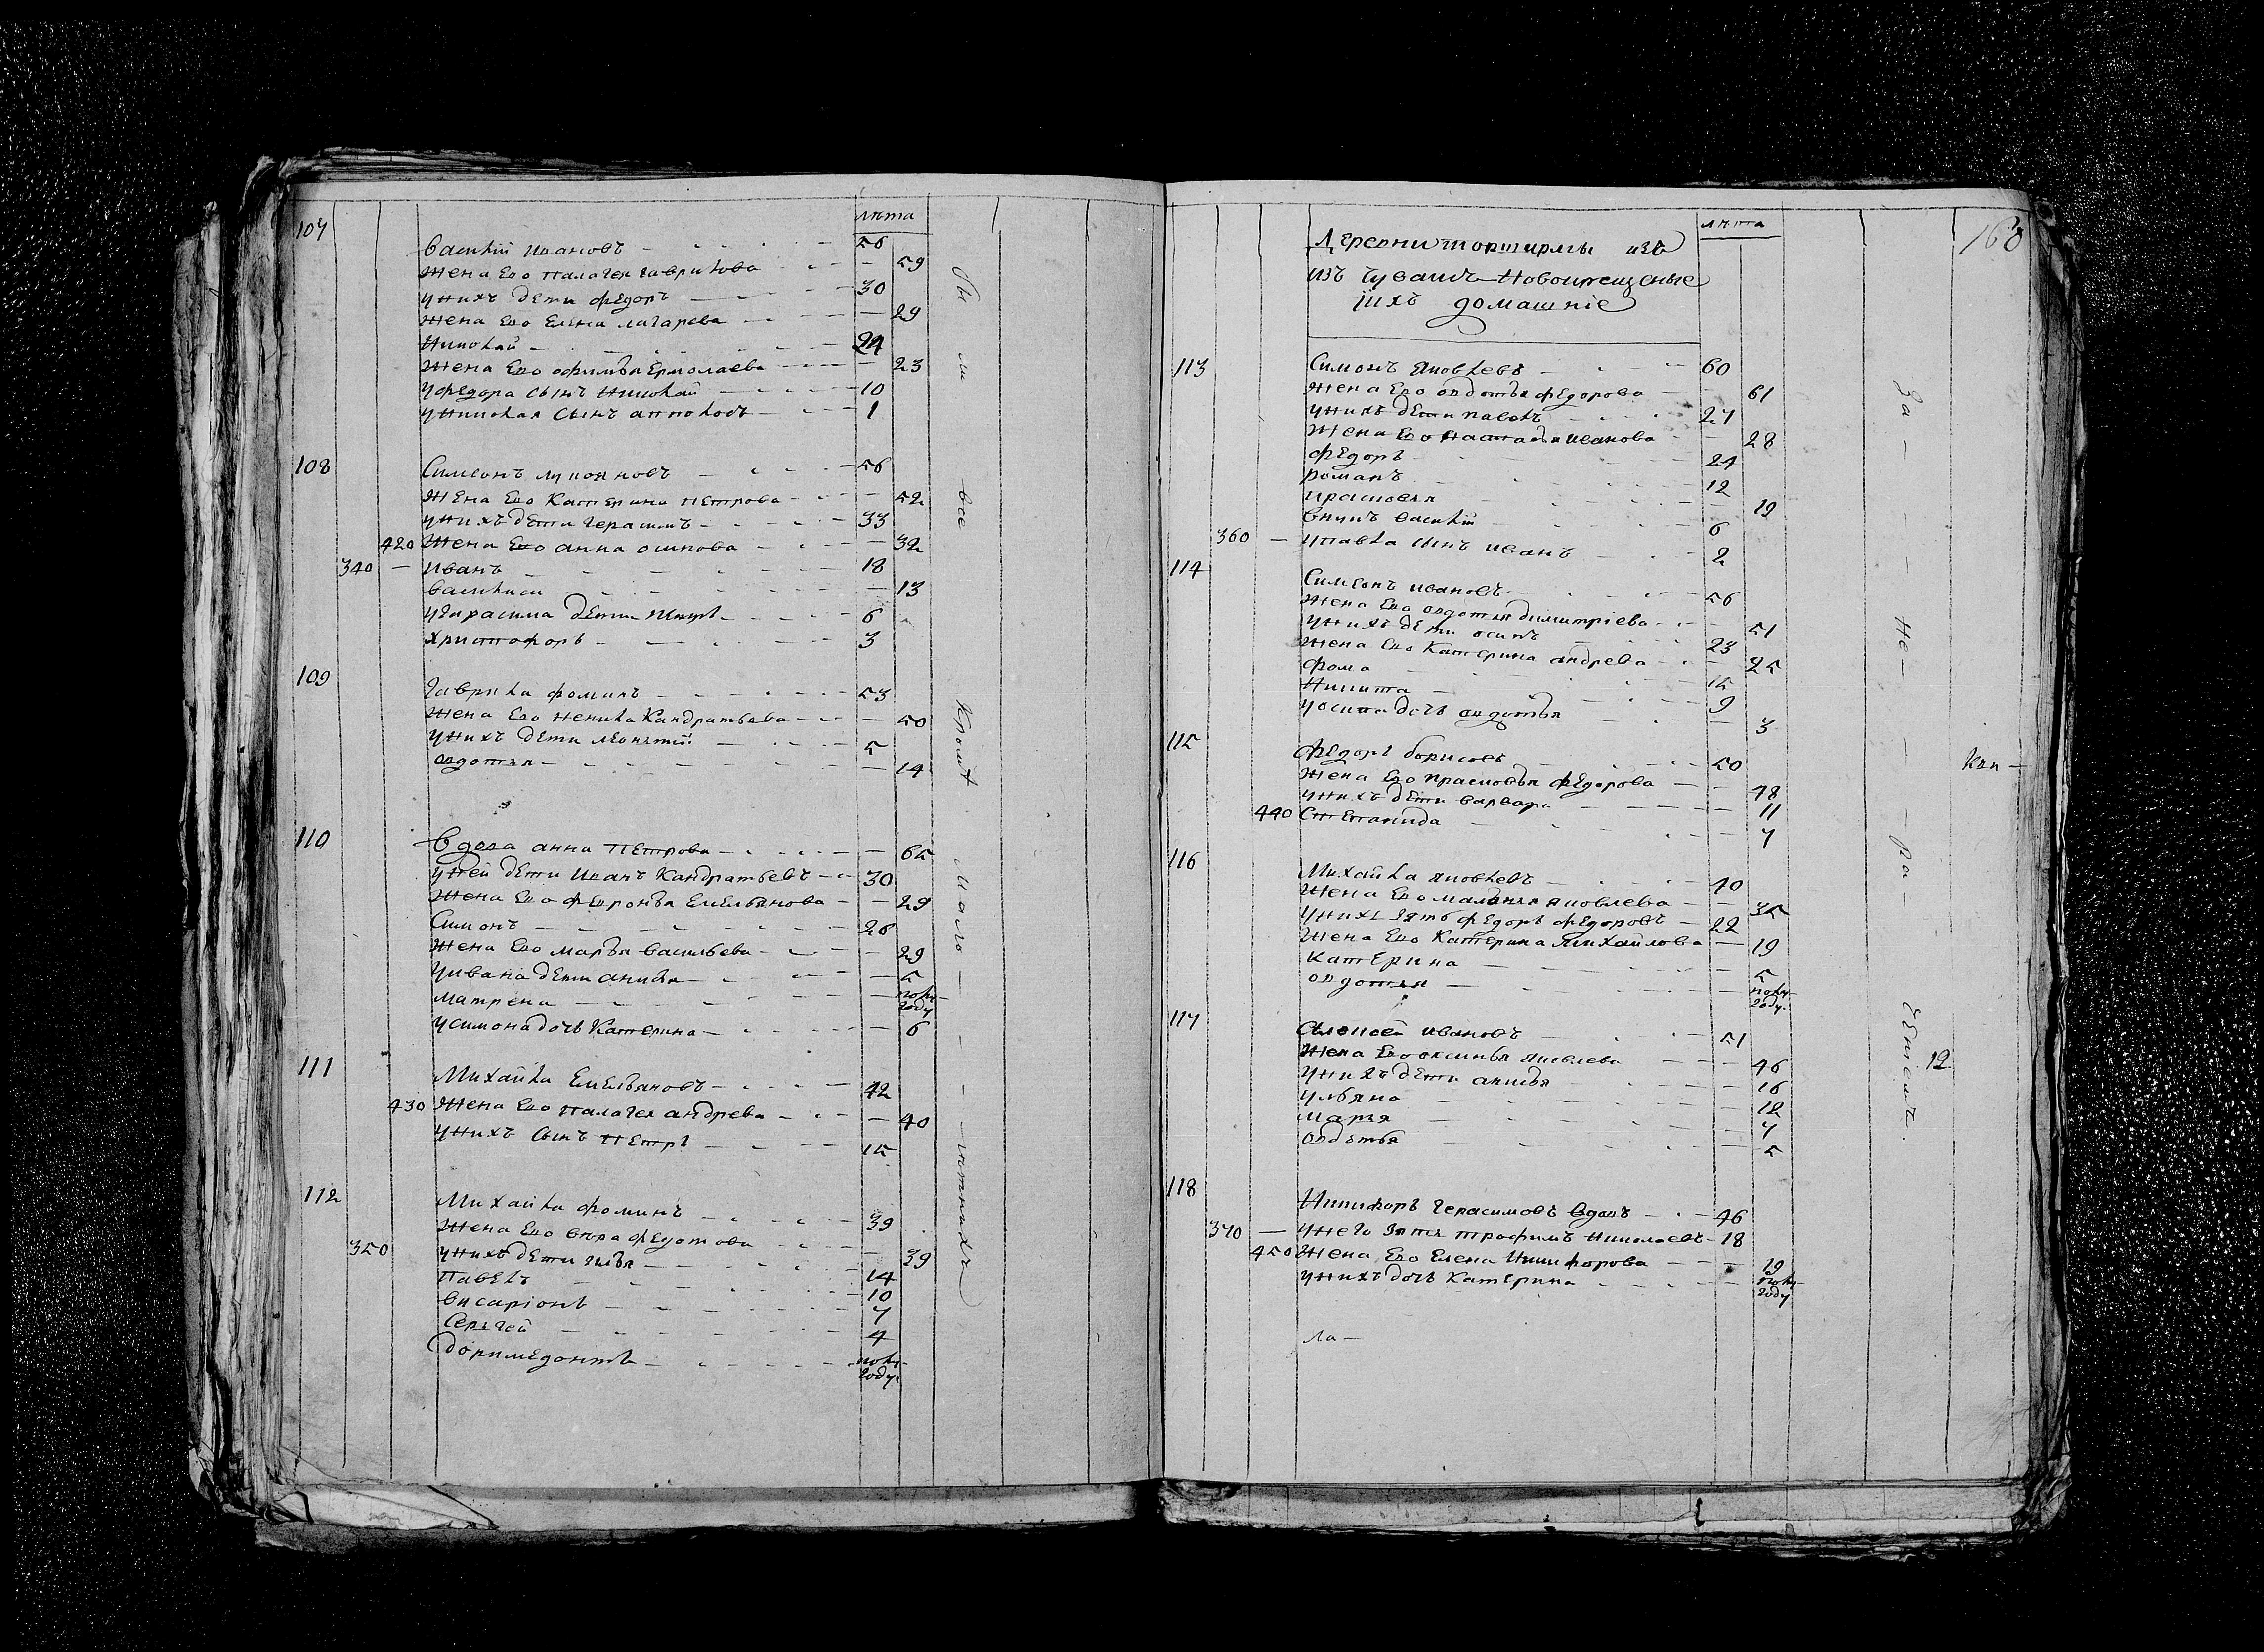 лѣта
107
василий ивановъ 56
жена Ево палагея гаврилова 59
унихъ дети федоръ 30
жена Ево Елена лазарева 29
Николай 24
жена Ево офимья Ермолаева 23
уфедора сынъ Николай 10
униколая сынъ
1
108
Симеонъ лукояновъ 56
жена Ево Катерина Петрова 52
унихъ дети герасимъ 33
420 жена Ево анна осипова 32
340 иванъ 18
василиса 13
угирасима дети 6
христофоръ 3
109
гаврила фоминъ 53
жена Ево ненила Кандратьева 50
унихъ дети леонтий 5
овдотья 14
110
вдова анна Петрова 65
уней дети иванъ Кандратьевъ 30
жена Ево феѵронья Емельянова 29
Симонъ 26
жена Ево марья васильева 29
уивана дети анисья 5
матрена полу году
усимона дочь Катерина 6
111
Михайла Емельяновъ 42
430 жена Ево палагея андрева 40
унихъ сынъ Петръ 15
112
Михайла фоминъ 39
жена Ево вѣра федотова 39
350 унихъ дети илья 14
Павелъ 10
висаріонъ 7
Сергей 4
доримедонтъ полу году
Бы ли все Кромѣ мало лѣтнихъ
168
лѣта
Деревни торширмы изъ
изъ чувашъ новокрещеные
іихъ домашніе
113
Симонъ яковлевъ 60
жена Ево овдотья федорова 61
унихъ дети павелъ 27
жена Ево настасья иванова 28
федоръ 24
романъ 12
прасковья 19
внукъ василий 6
360 упавла сынъ иванъ 2
114
Симеонъ ивановъ 56
жена Ево овдотья димитріева 51
унихъ дети осипъ 23
жена Ево Катерина андрева 25
фома 15
Никита 9
уосипа дочь овдотья 3
115
федоръ борисовъ 50
жена Ево прасковья федорова 48
унихъ дети варвара 11
440 Степанида 7
116
Михайла яковлевъ 40
жена Ево маланья яковлева 35
унихъ зять федоръ федоровъ 22
жена Ево Катерина Михайлова 19
Катерина 5
овдотья полу году
117
алексей ивановъ 51
жена Ево оксинья яковлева 46
унихъ дети анисья 16
ульяна 12
марья 7
овдотья 5
118
Никифоръ герасимовъ вдовъ 46
370 унего зять трофимъ николаевъ 18
450 жена Ево Елена Никифорова 19
унихъ дочь Катерина полу году
ла
За не ра Ениемъ
12
кви